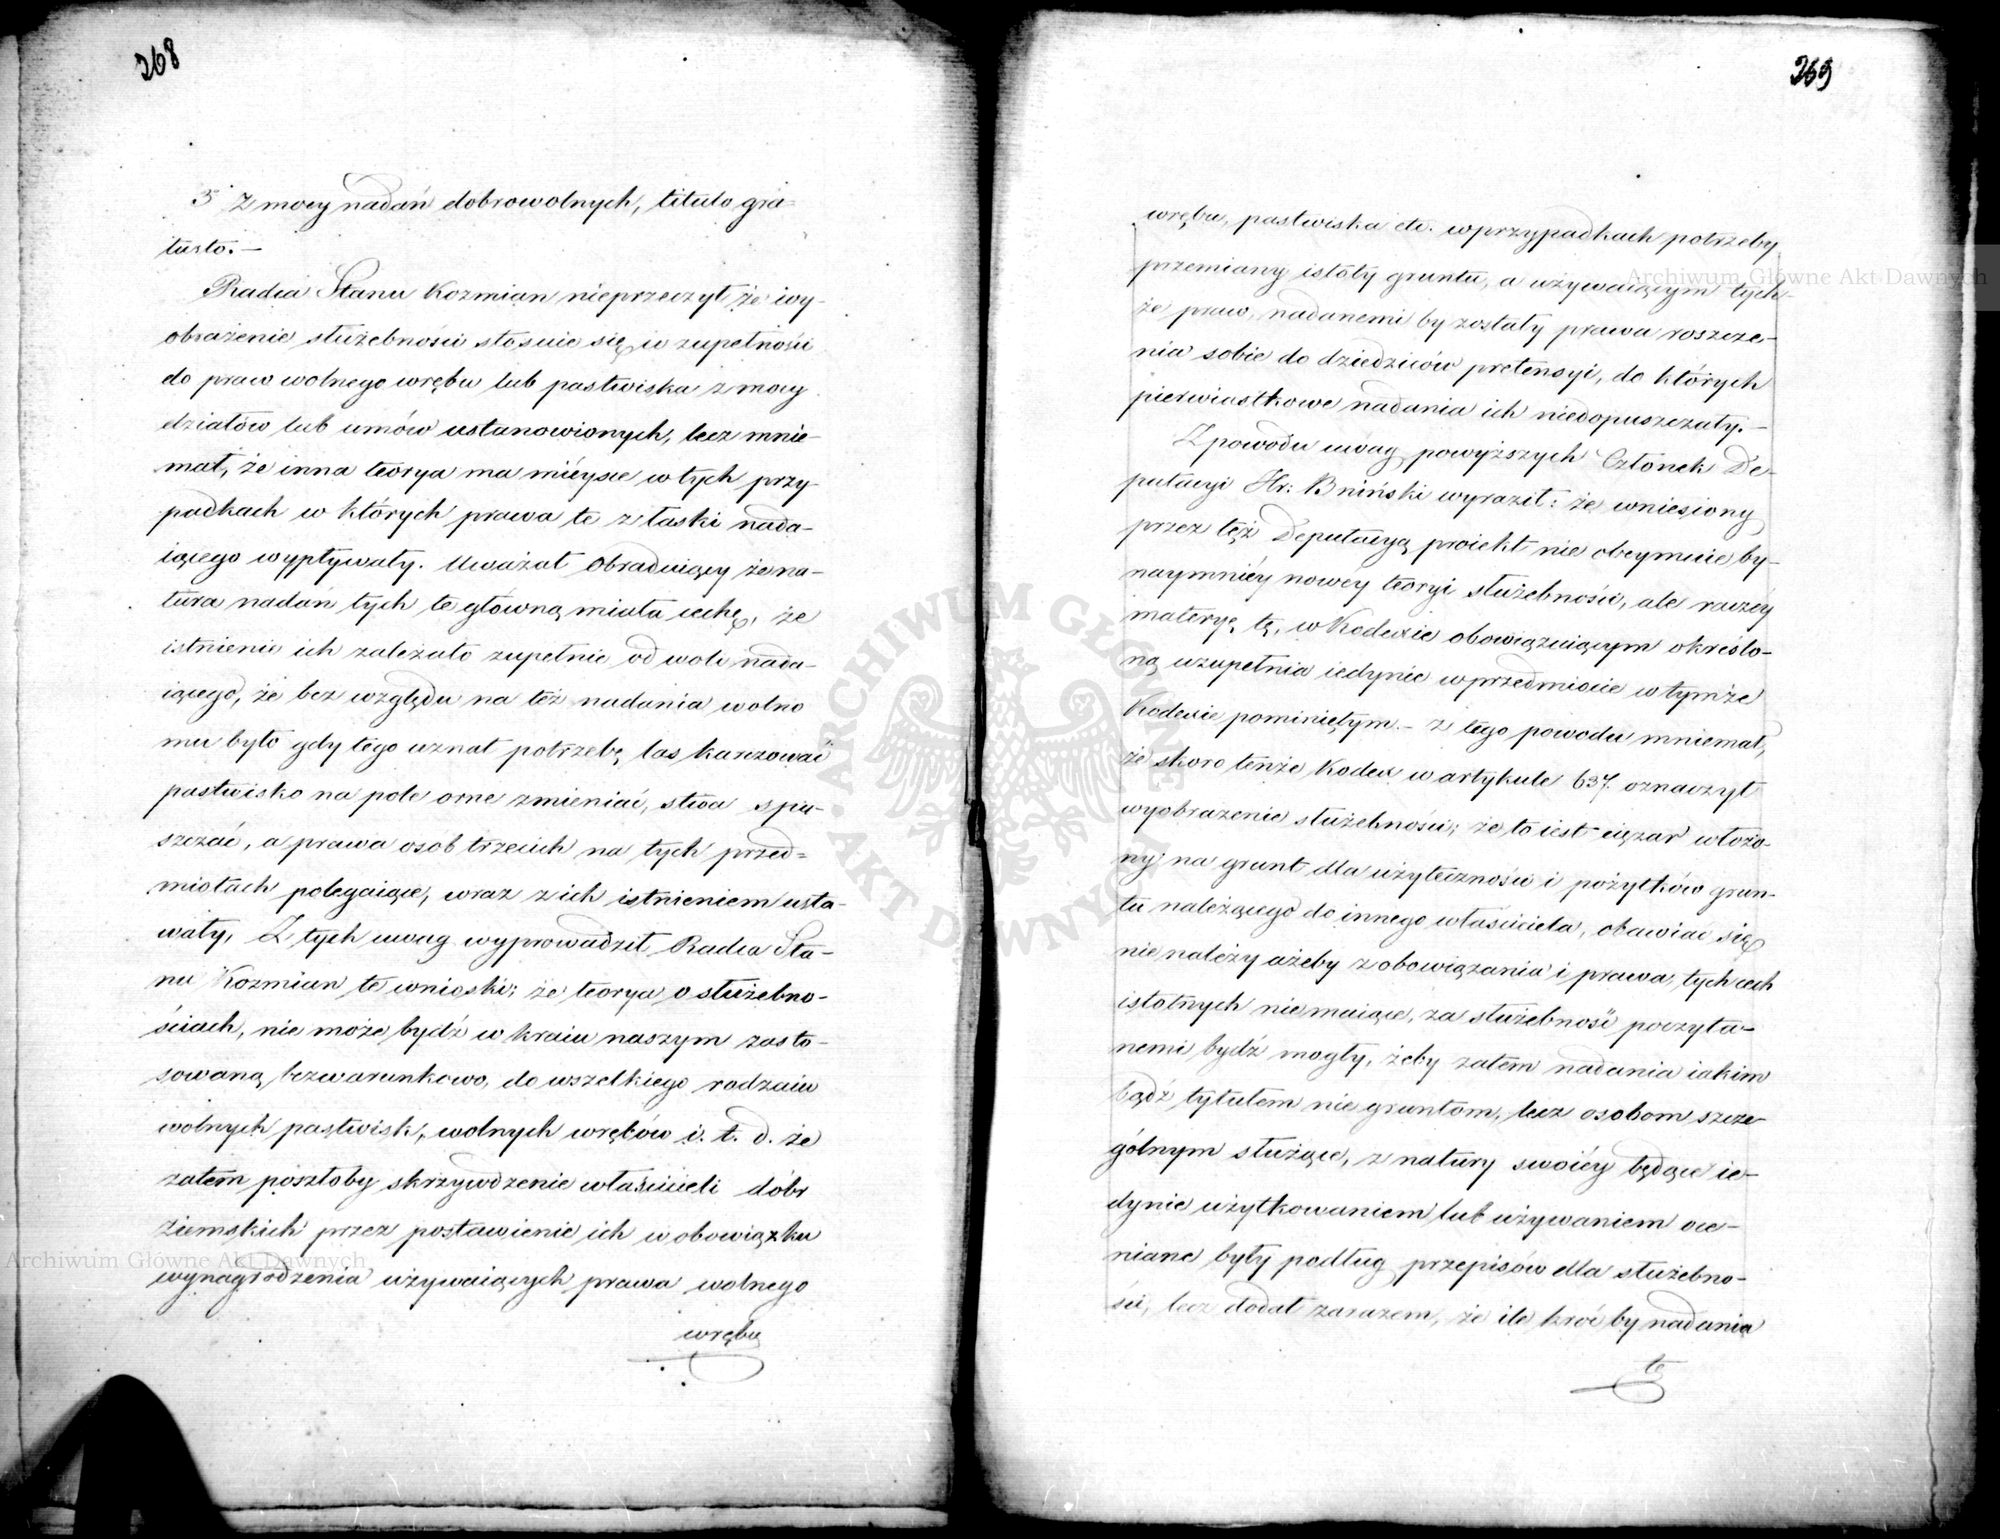 268
3° Z mocy nadań dobrowolnych, titulo gra=
tuito. —
Radca Stanu Kozmian nieprzeczył że wy-
obrażenie służebności stosuie się w zupełności
do praw wolnego wrębu lub pastwiska z mocy
działów lub umów ustanowionych, lecz mnie-
mał, że inna teorya ma mieysce w tych przy-
padkach w których prawa te z łaski nada-
iącego wypływały. Uważał Obraduiący że na-
tura nadań tych te główną miała cechę, że
istnienie ich zależało zupełnie od woli nada-
iącego, że bez względu na też nadania wolno
mu było gdy tego uznał potrzebę las karczować
pastwisko na pole orne zmieniać, stwa spu-
szczać, a prawa osób trzecich na tych przed=
miotach polegaiące, wraz z ich istnieniem usta-
wały. Z tych uwag wyprowadził Radca Sta-
nu Kozmian te wnioski; że teorya o służebno-
ściach, nie może bydź w kraiu naszym zasto-
sowaną bezwarunkowo, do wszelkiego rodzaiu
wolnych pastwisk, wolnych wrębów i. t. d. że
zatem poszłoby skrzywdzenie właścicieli dóbr
ziemskich przez postawienie ich w obowiązku
wynagrodzenia używaiących prawa wolnego
wrębu
269
wrębu, pastwiska etc. w przypadkach potrzeby
przemiany istoty gruntu, a używaiącym tych-
że praw, nadanemi by zostały prawa roszcze-
nia sobie do dziedziców pretensyi, do których
pierwiastkowe nadania ich niedopuszczały. —
Z powodu uwag powyższych Członek De-
putacyi Hr: Bniński wyraził: że wniesiony
przez też Deputacyą proiekt nie obeymuie by-
naymniéy nowéy teoryi służebności, ale raczéy
materyę tę, w Kodexie obowiązuiącym określo-
ną uzupełnia iedynie w przedmiocie w tymże
Kodexie pominiętym. — z tego powodu mniemał,
że skoro tenże Kodex w artykule 637. oznaczył
wyobrażenie służebności; że to iest ciężar włożo-
ny na grunt dla użyteczności i pożytków grun-
tu należącego do innego właściciela, obawiać się
nie należy ażeby z obowiązania i prawa, tych cech
istotnych niemaiące, za służebność poczyta-
nemi bydź mogły, żeby zatem nadania iakim
bądź tytułem nie gruntom, lecz osobom szcze-
gólnym służące, z natury swoiéy będące ie-
dynie użytkowaniem lub używaniem oce-
niane były podług przepisów dla służebno-
ści, lecz dodał zarazem, że ile kroć by nadania
te
Archiwum Główne Akt Dawnych
Archiwum Główne Akt Dawnych
ARCHIWUM GŁÓWNE AKT DAWNYCH